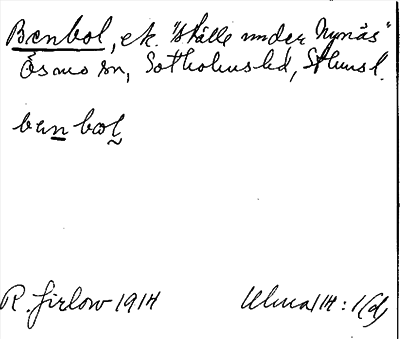 Benbol, ek. "ställe under Nynäs"
Ösmo sn, Sotholms hd, Sthms l.
benbol
R. Jirlow 1914
Ulma 114 : 1(d)